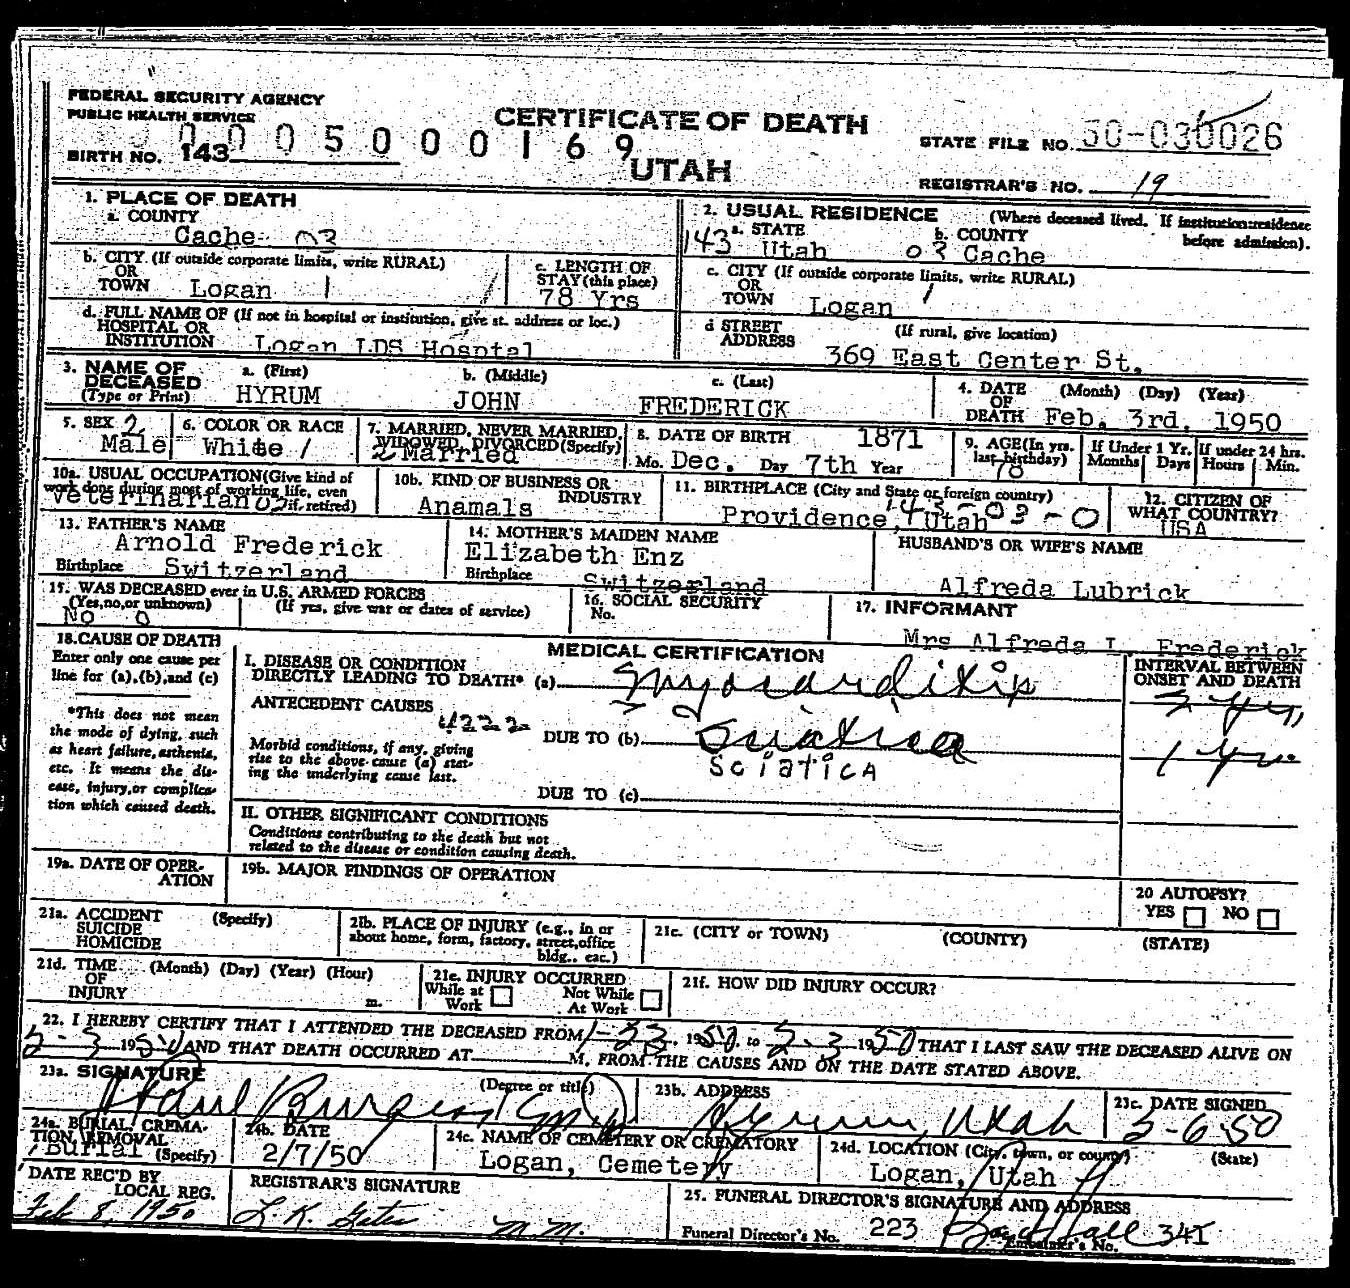 FEDERAL SECURITY AGENCY
PUBLIC HEALTH SERVICE
CERTIFICATE OF DEATH
0005000169
STATE FILE NO. 50-030026
BIRTH NO. 143
UTAH
REGISTRAR'S NO. 19
1. PLACE OF DEATH
a. COUNTY
Cache 03
2. USUAL RESIDENCE (Where deceased lived. If institution:residence before admission).
a. STATE b. COUNTY
143 Utah 03 Cache
b. CITY (If outside corporate limits, write RURAL)
OR
TOWN Logan 1
c. LENGTH OF
STAY (this place)
78 Yrs
c. CITY (If outside corporate limits, write RURAL)
OR
TOWN Logan 1
d. FULL NAME OF (If not in hospital or institution, give st. address or loc.)
HOSPITAL OR
INSTITUTION Logan LDS Hosptal
d STREET (If rural, give location)
ADDRESS
369 East Center St.
3. NAME OF
DECEASED
(Type or Print)
a. (First) b. (Middle) c. (Last)
HYRUM JOHN FREDERICK
4. DATE (Month) (Day) (Year)
OF
DEATH Feb. 3rd, 1950
5. SEX 2
Male
6. COLOR OR RACE
White 1
7. MARRIED, NEVER MARRIED,
WIDOWED, DIVORCED (Specify)
2 Married
8. DATE OF BIRTH 1871
Mo. Dec. Day 7th Year
9. AGE (In yrs.
last birthday)
78
If Under 1 Yr.
Months Days
If under 24 hrs.
Hours Min.
10a. USUAL OCCUPATION (Give kind of
work done during most of working life, even
if retired)
Veterinarian
10b. KIND OF BUSINESS OR
INDUSTRY
Anamals
11. BIRTHPLACE (City and State or foreign country)
143-03-0
Providence, Utah
12. CITIZEN OF
WHAT COUNTRY?
USA
13. FATHER'S NAME
Arnold Frederick
Birthplace Switzerland
14. MOTHER'S MAIDEN NAME
Elizabeth Enz
Birthplace Switzerland
HUSBAND'S OR WIFE'S NAME
Alfreda Lubrick
15. WAS DECEASED ever in U.S. ARMED FORCES
(Yes,no,or unknown) (If yes, give war or dates of service)
No 0
16. SOCIAL SECURITY
No.
17. INFORMANT
Mrs Alfreda L. Frederick
18. CAUSE OF DEATH
Enter only one cause per
line for (a),(b),and (c)
*This does not mean
the mode of dying, such
as heart failure, asthenia,
etc. It means the dis-
ease, injury,or complica-
tion which caused death.
MEDICAL CERTIFICATION
I. DISEASE OR CONDITION
DIRECTLY LEADING TO DEATH* (a) Myocarditis
INTERVAL BETWEEN
ONSET AND DEATH
ANTECEDENT CAUSES
4222
Morbid conditions, if any, giving
rise to the above cause (a) stat-
ing the underlying cause last.
DUE TO (b) Sciatica
SciaticA
1 yr.
DUE TO (c)
II. OTHER SIGNIFICANT CONDITIONS
Conditions contributing to the death but not
related to the disease or condition causing death.
19a. DATE OF OPER-
ATION
19b. MAJOR FINDINGS OF OPERATION
20 AUTOPSY?
YES NO
21a. ACCIDENT (Specify)
SUICIDE
HOMICIDE
21b. PLACE OF INJURY (e.g., in or
about home, form, factory, street,office
bldg., etc.)
21c. (CITY or TOWN) (COUNTY) (STATE)
21d. TIME (Month) (Day) (Year) (Hour)
OF
INJURY m.
21e. INJURY OCCURRED
While at Work Not While At Work
21f. HOW DID INJURY OCCUR?
22. I HEREBY CERTIFY THAT I ATTENDED THE DECEASED FROM 1-23, 1950, to 2-3 1950 THAT I LAST SAW THE DECEASED ALIVE ON
2-3 1950 AND THAT DEATH OCCURRED AT M, FROM THE CAUSES AND ON THE DATE STATED ABOVE.
23a. SIGNATURE (Degree or title)
Paul Burgess
23b. ADDRESS
Hyrum, Utah
23c. DATE SIGNED
2-6-50
24a. BURIAL, CREMA-
TION, REMOVAL
Burial (Specify)
24b. DATE
2/7/50
24c. NAME OF CEMETERY OR CREMATORY
Logan, Cemetery
24d. LOCATION (City, town, or county) (State)
Logan, Utah
DATE REC'D BY
LOCAL REG.
Feb 8, 1950
REGISTRAR'S SIGNATURE
25. FUNERAL DIRECTOR'S SIGNATURE AND ADDRESS
Funeral Director's No. 223
Embalmer's No. 341